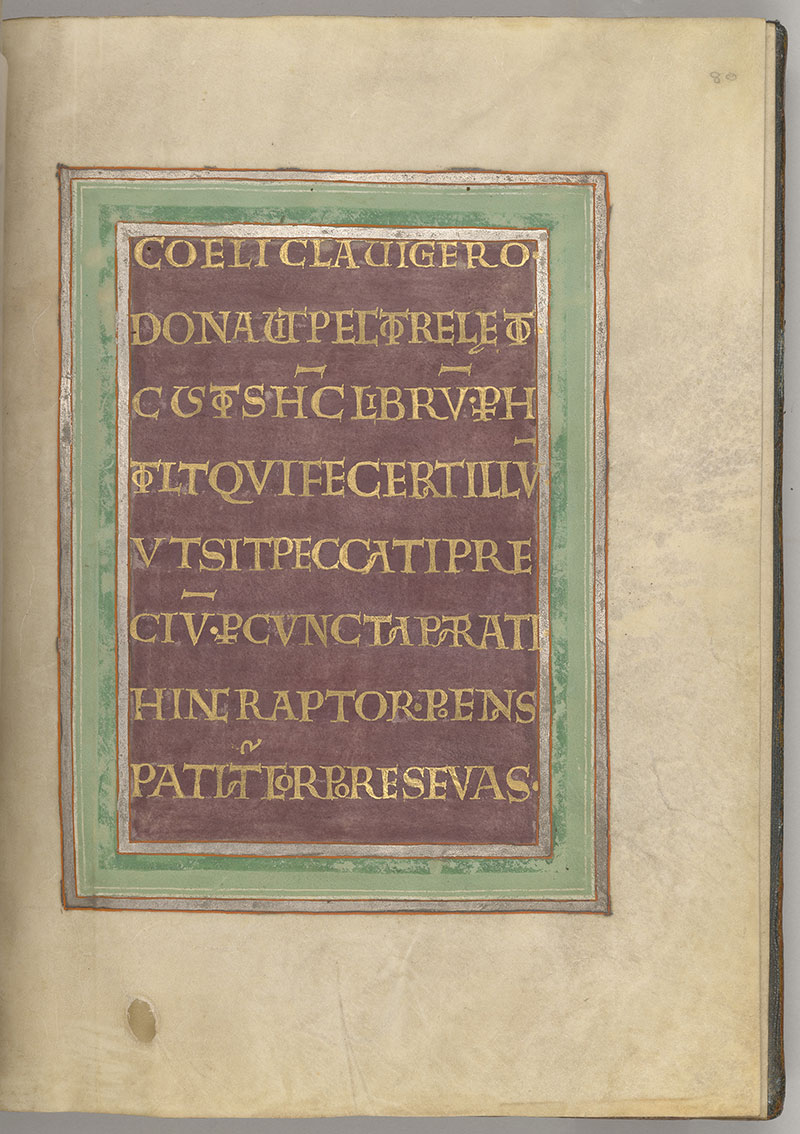 COELI CLAVIGERO·
DONAUIT PECTORE LĘTO
CUSTOS HC̄ LIBRV̄·ꝐH
TOLT QVI FECERAT ILLV̄
VT SIT PECCATI PRE
CIV̄·ꝐCVNCTA PARATI
HINC RAPTOR·POENAS
PATIAT̃ CORPORE SEVAS·
80